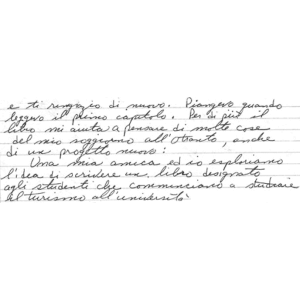 e ti ringrazio di nuovo. Piangevo quando
leggevo il primo capitolo. Per di più il
libro mi aiuta a pensare di molte cose
del mio soggiorno all'Otranto, anche
di un progetto nuovo:
Una mia amica ed io esploriamo
l'idea di scrivere un libro designato
agli studenti che comminciano a studiare
il turismo all'università